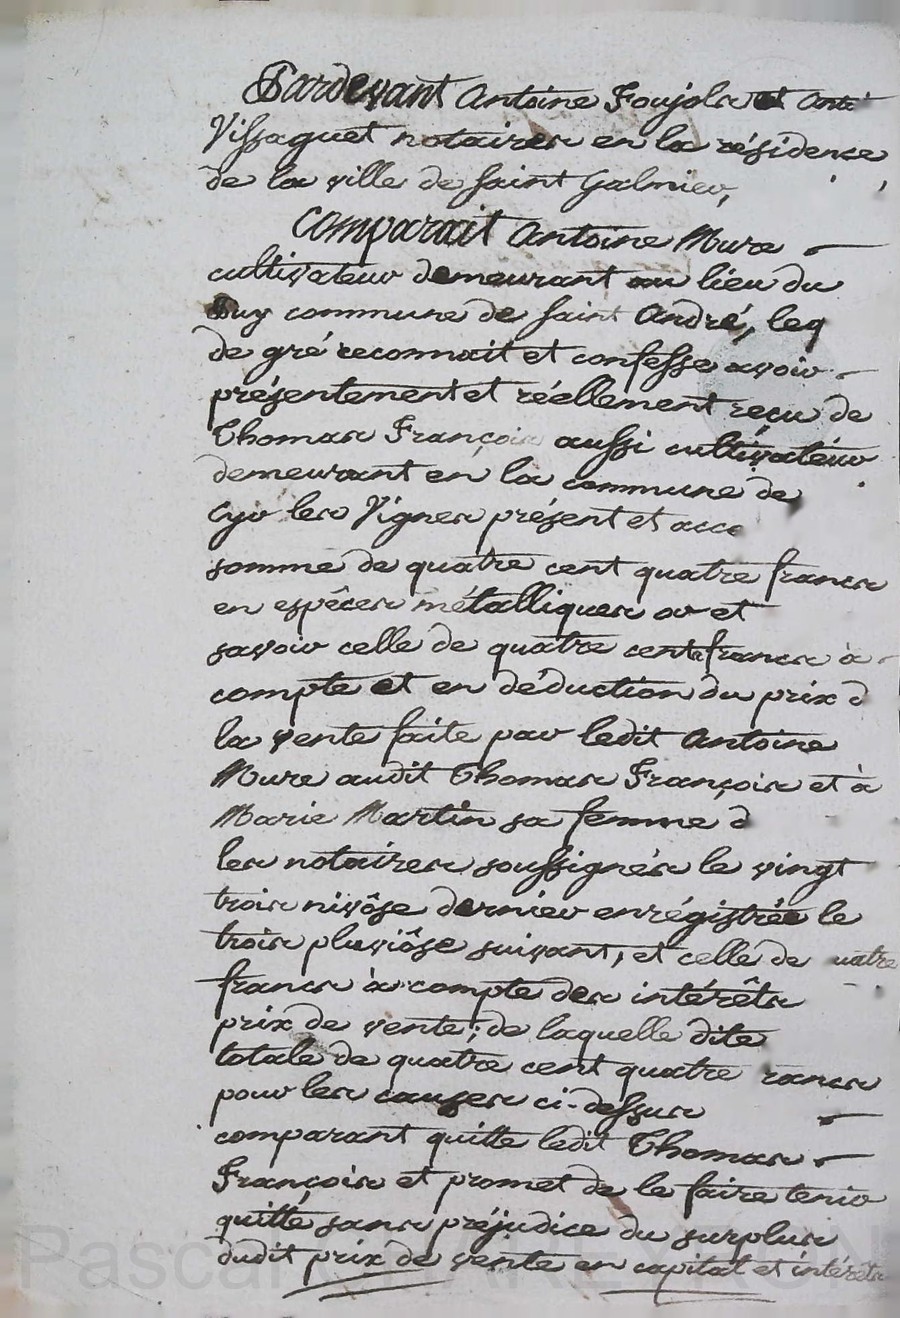 Pardevant Antoine Foujols et Ante
Vissaguet notaires en la résidence
de la ville de Saint Galmier,
Comparait Antoine Mure
cultivateur demeurant au lieu du
Puy commune de Saint André, leq
de gré reconnait et confesse avoir
présentement et réellement reçu de
Thomas François aussi cultivateur
demeurant en la commune de
Cyr les Vignes présent et acce
somme de quatre cent quatre francs
en espèces métalliques or et
savoir celle de quatre cents francs à
compte et en déduction du prix d
la vente faite par ledit Antoine
Mure audit Thomas François et à
Marie Martin sa femme d
les notaires soussignés le vingt
trois nivôse dernier enrégistrée le
trois pluviôse suivant, et celle de uatre
francs à compte des intérêts
prix de vente; de laquelle dite
totale de quatre cent quatre rancs
pour les causes ci-dessus
comparant quitte ledit Thomas
François et promet de le faire tenir
quitte sans préjudice du surplus
dudit prix de vente en capital et intérêts